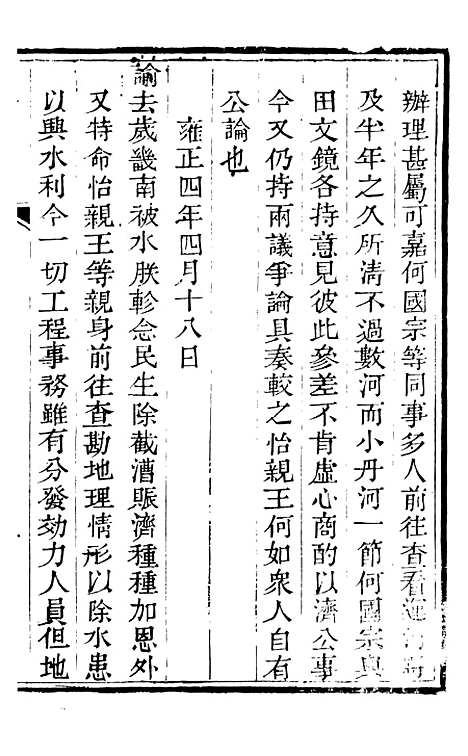 辦理甚屬可嘉何國宗等同事多人前往查看
及半年之久所清不過數河而小丹河一節何國宗與
田文鏡各持意見彼此參差不肯虛心商酌以濟公事
今又仍持兩議爭論具奏較之怡親王何如衆人自有
公論也
雍正四年四月十八日
諭去歲畿南被水朕軫念民生除截漕賑濟種種加恩外
又特命怡親王等親身前往查勘地理情形以除水患
以興水利今一切工程事務雖有分發効力人員但地